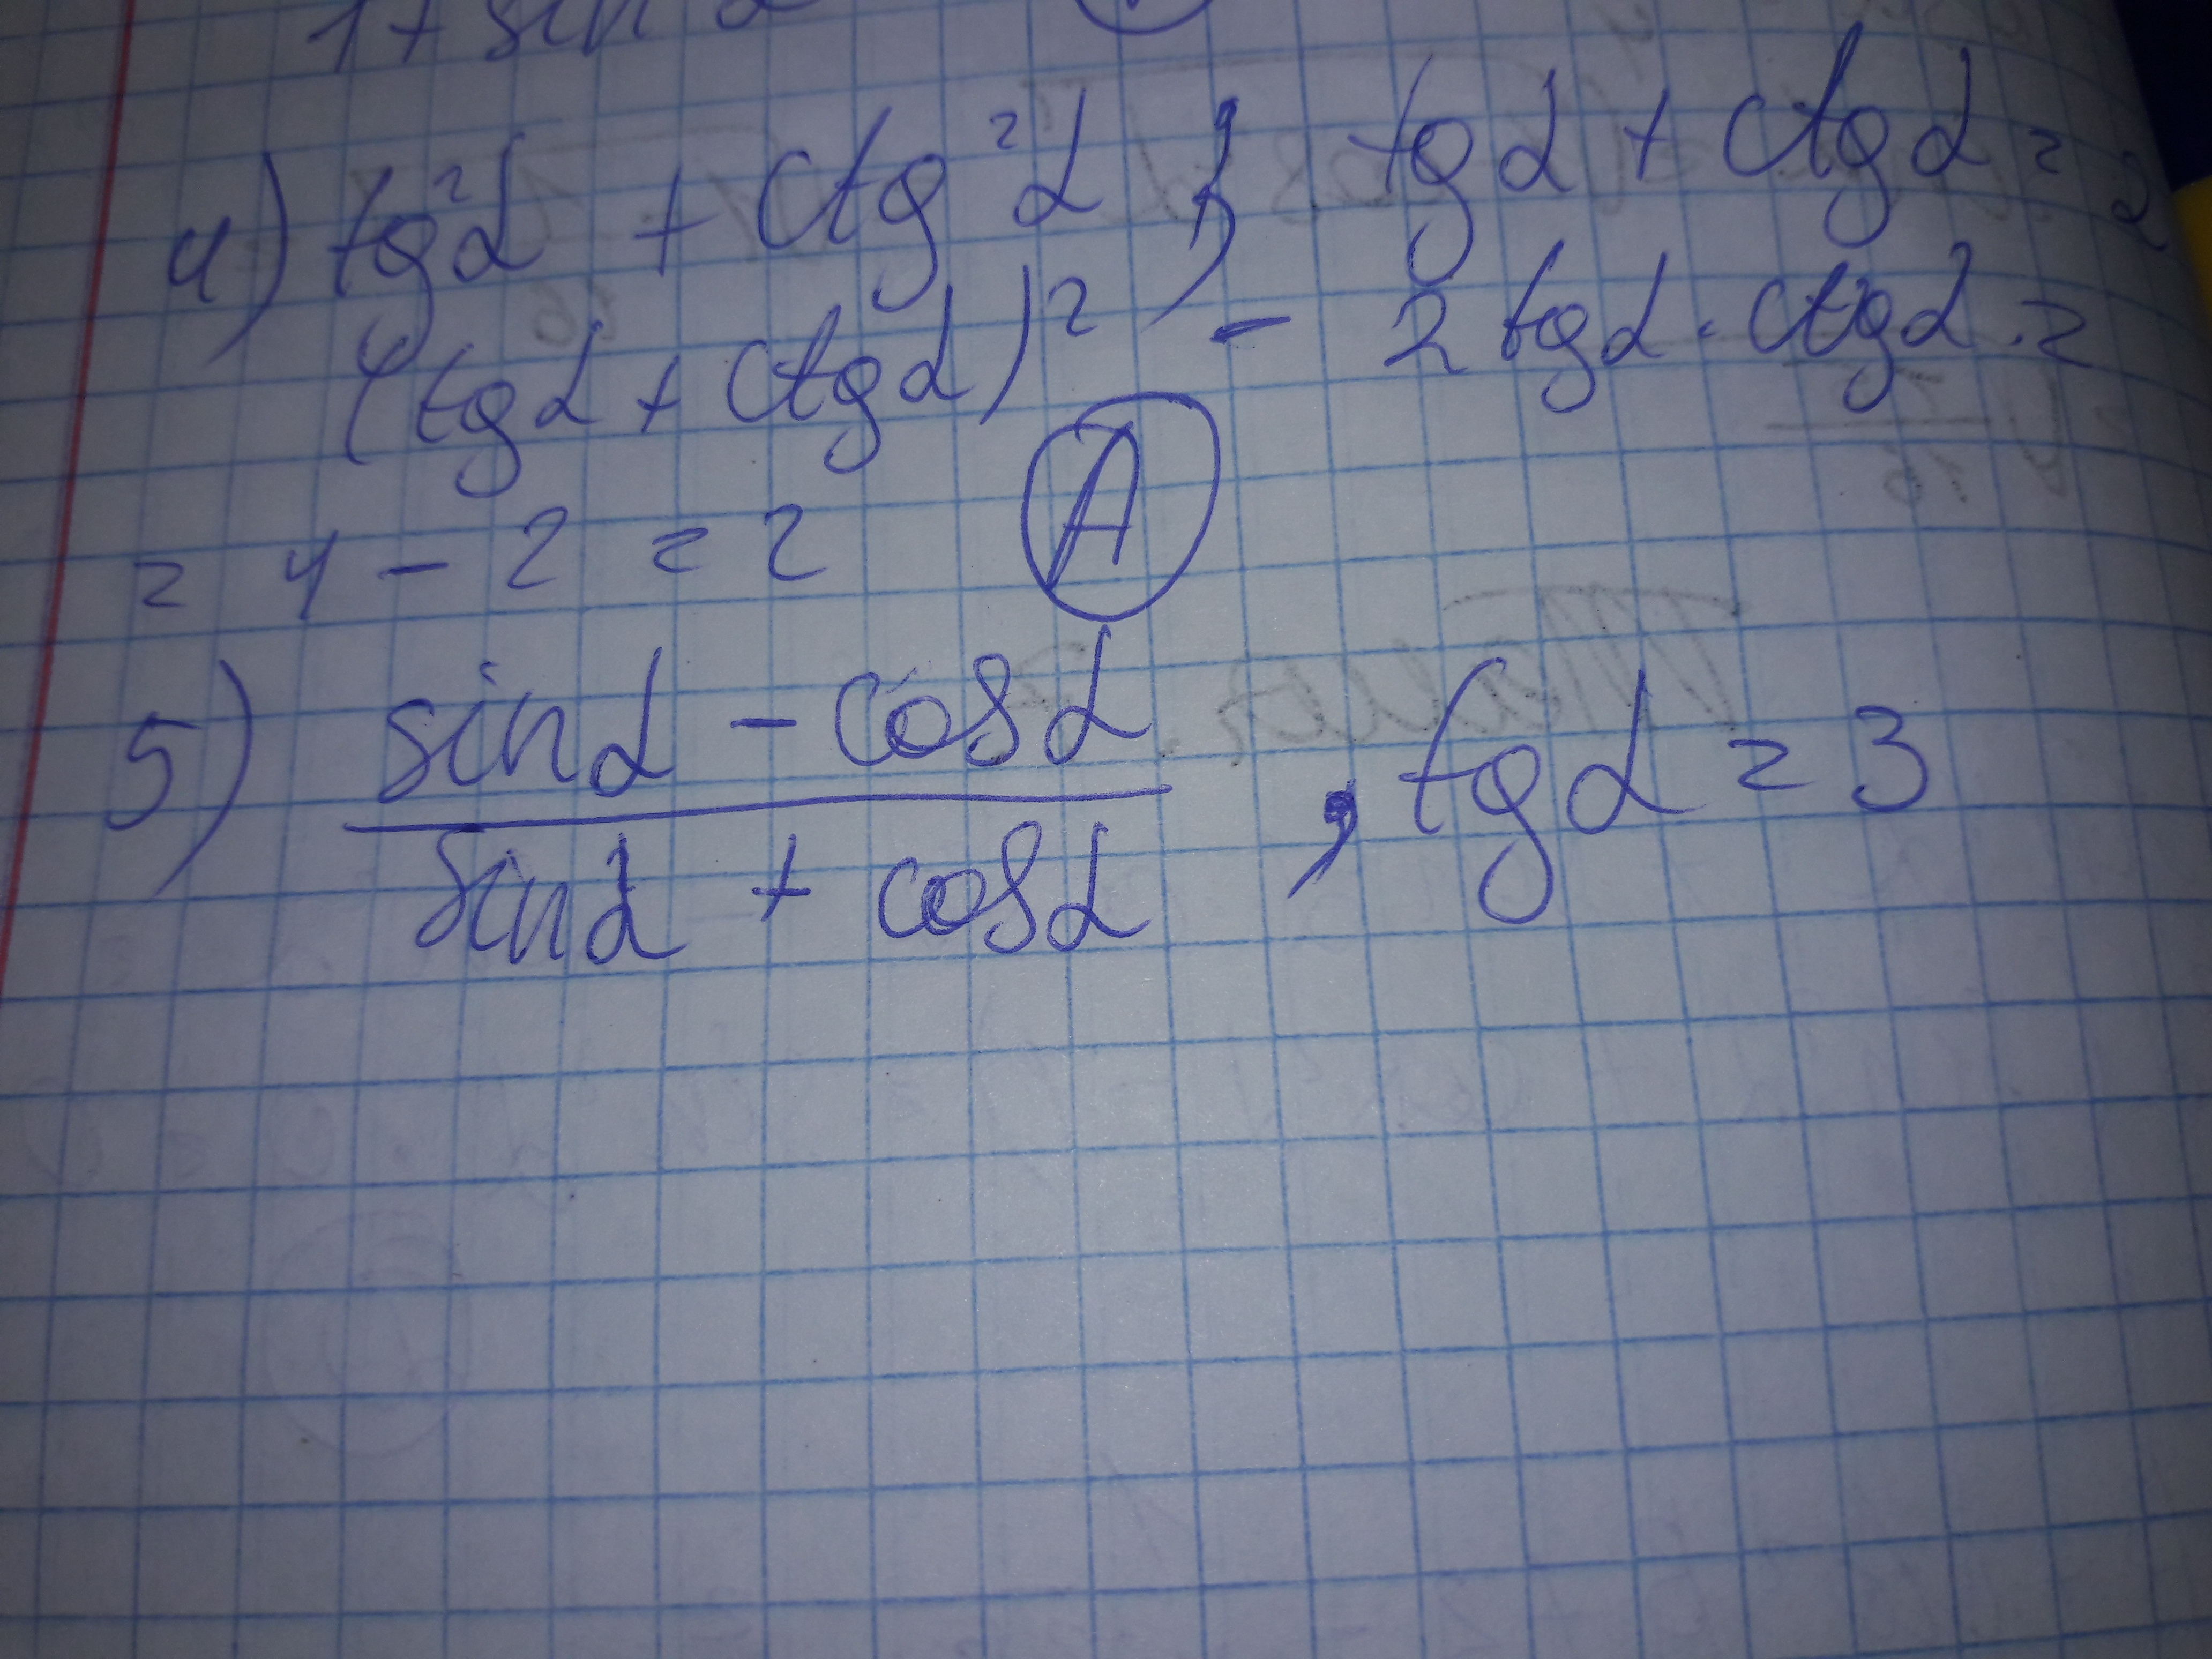 1 + sin α
4) tg²α + ctg²α ; tgα + ctgα = 2
(tgα + ctgα)² - 2tgα · ctgα =
= 4 - 2 = 2 A
5) sinα - cosα
sinα + cosα , tgα = 3